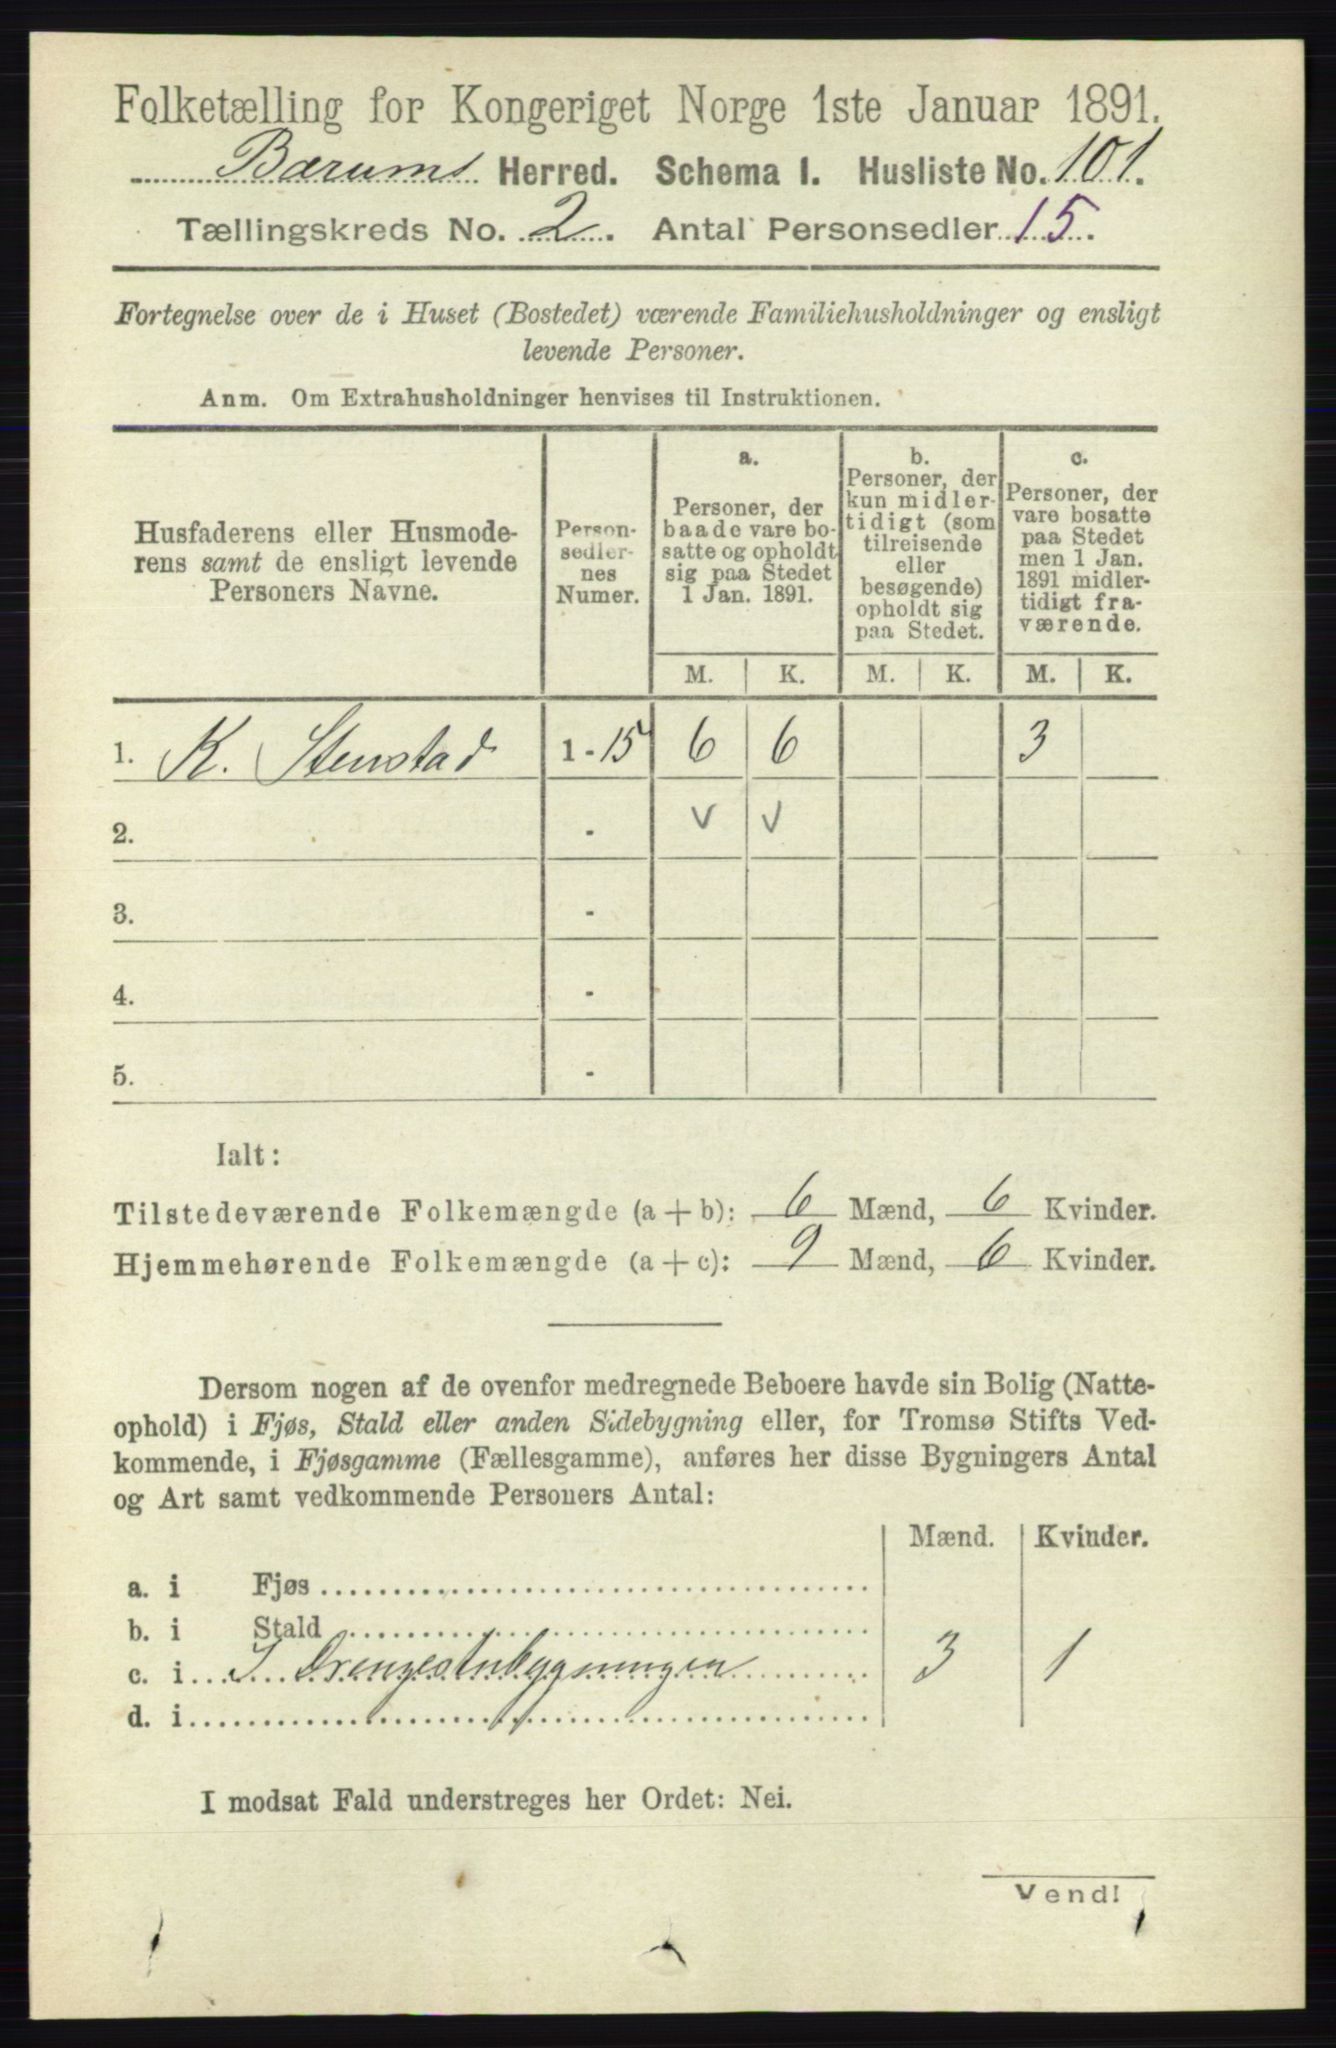 Folketælling for Kongeriget Norge 1ste Januar 1891.
Bærums Herred. Schema I. Husliste No. 101.
Tællingskreds No. 2. Antal Personsedler 15.
Fortegnelse over de i Huset (Bostedet) værende Familiehusholdninger og ensligt
levende Personer.
Anm. Om Extrahusholdninger henvises til Instruktionen.
Husfaderens eller Husmode-
rens samt de ensligt levende
Personers Navne.
Person-
sedler-
nes
Numer.
a.
Personer, der
baade vare bo-
satte og opholdt
sig paa Stedet
1 Jan. 1891.
b.
Personer, der
kun midler-
tidigt (som
tilreisende
eller
besøgende)
opholdt sig
paa Stedet.
c.
Personer, der
vare bosatte
paa Stedet
men 1 Jan.
1891 midler-
tidigt fra-
værende.
M. K. M. K. M. K.
1. K. Stenstad 1-15 6 6 3
2. - v v
3. -
4. -
5. -
Ialt:
Tilstedeværende Folkemængde (a+b): 6 Mænd, 6 Kvinder.
Hjemmehørende Folkemængde (a+c): 9 Mænd, 6 Kvinder.
Dersom nogen af de ovenfor medregnede Beboere havde sin Bolig (Natte-
ophold) i Fjøs, Stald eller anden Sidebygning eller, for Tromsø Stifts Ved-
kommende, i Fjøsgamme (Fællesgamme), anføres her disse Bygningers Antal
og Art samt vedkommende Personers Antal:
Mænd. Kvinder.
a. i Fjøs
b. i Stald
c. i I Drengestubygningen 3 1
d. i
I modsat Fald understreges her Ordet: Nei.
Vend!